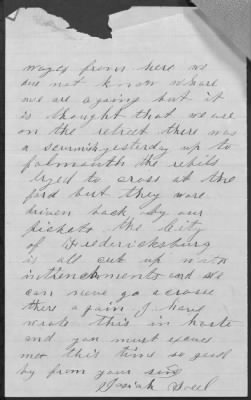 wayes from here we
due not know whare
we are a going but it
is thought that we are
on the retreet there was
a scurmish yesterday up to
falmauth the rebils
tryed to cross at the
ford but they ware
driven back by our
pickets the City
of Fredericksburg
is all cut up with
intrenchments and we
can never go a crosse
there a gain I have
wrote this in haste
and you must excuse
me this time so good
by from your son
Josiah